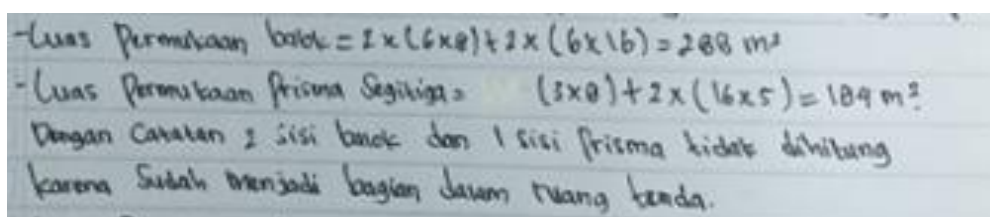 -Luas Permukaan balok = 2 x (6x8) + 2 x (6x16) = 288 m²
- Luas Permukaan Prisma Segitiga = (3x8) + 2 x (16x5) = 184 m².
Dengan Catatan 2 sisi balok dan 1 sisi Prisma tidak dihitung
karena Sudah menjadi bagian dalam ruang tenda.